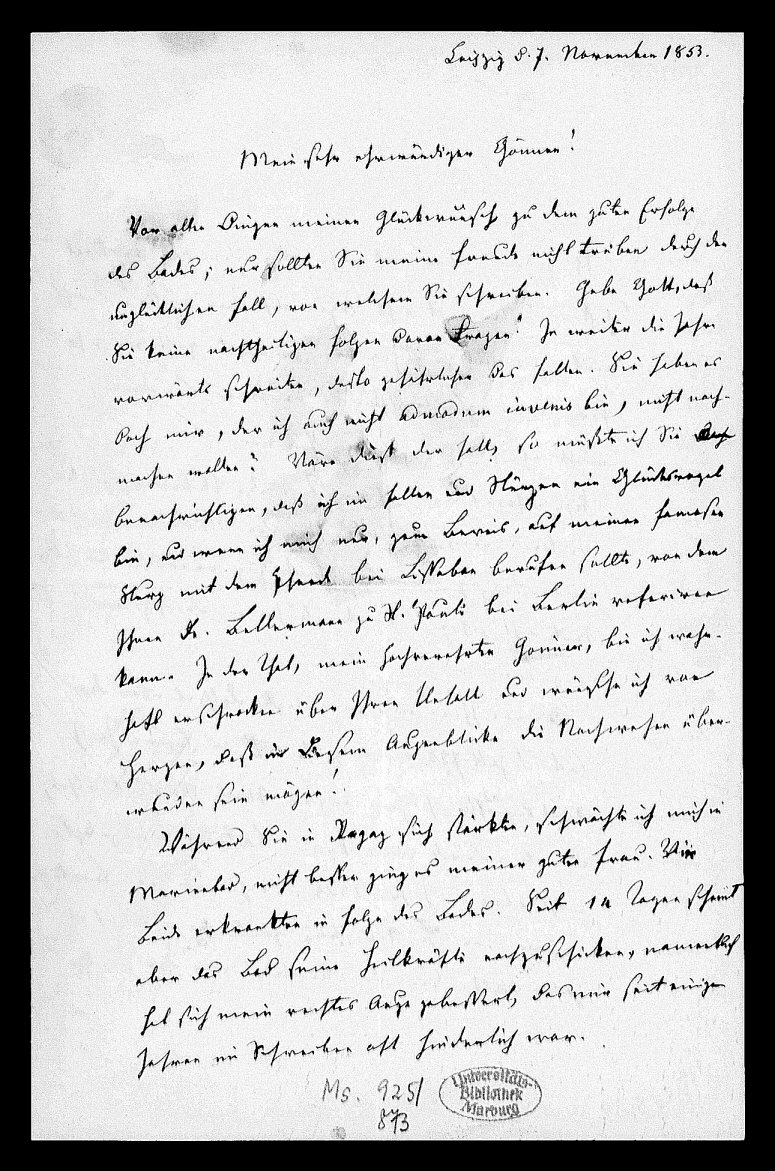 Leipzig d. 7. November 1853.
Mein sehr ehrwürdiger Gönner!
Vor allen Dingen meinen Glückwunsch zu dem guten Erfolge
des Bades; nur sollten Sie meine Freude nicht trüben durch den
unglücklichen Fall, von welchem Sie schreiben. Gebe Gott, daß
Sie keine nachtheiligen Folgen davon tragen! Je weiter die Jahre
vorwärts schreiten, desto gefährlicher das Fallen. Sie haben es
doch mir, der ich auch nicht admodum iuvenis bin, nicht nach-
machen wollen? Wäre dieß der Fall, so müßte ich Sie
benachrichtigen, daß ich im Fallen und Stürzen ein Glücksvogel
bin, und wenn ich mich nur, zum Beweis, auf meinen famosen
Sturz mit dem Pferde bei Lissabon berufen sollte, von dem
Ihnen Dr. Bellermann zu St. Pauli bei Berlin referiren
kann. In der That, mein hochverehrter Gönner, bin ich wahr-
haft erschrocken über Ihren Unfall und wünsche ich von
Herzen, daß in diesem Augenblicke die Nachwehen über-
wunden sein mögen!
Während Sie in Ragaz sich stärkten, schwächte ich mich in
Marienbad, nicht besser ging es meiner guten Frau. Wir
Beide erkrankten in Folge des Bades. Seit 14 Tagen scheint
aber das Bad seine Heilkräfte nachzuschicken, namentlich
hat sich mein rechtes Auge gebessert, das mir seit einigen
Jahren im Schreiben oft hinderlich war.
Ms. 925/
873
Universitäts-
Bibliothek
Marburg